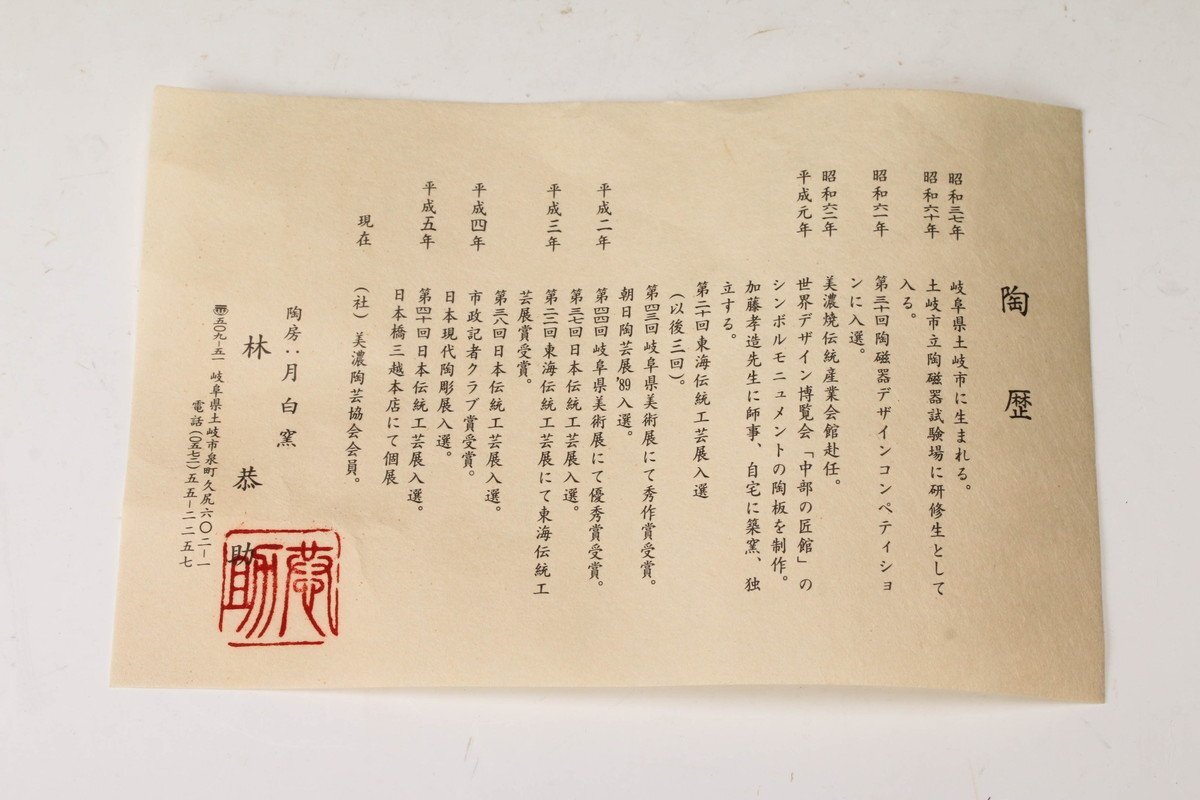 陶歴
昭和三七年 岐阜県土岐市に生まれる。
昭和六十年 土岐市立陶磁器試験場に研修生として
入る。
昭和六一年 第三十回陶磁器デザインコンペティショ
ンに入選。
昭和六二年 美濃焼伝統産業会館赴任。
平成元年 世界デザイン博覧会「中部の匠館」の
シンボルモニュメントの陶板を制作。
加藤孝造先生に師事、自宅に築窯、独
立する。
第二十回東海伝統工芸展入選
(以後三回)。
平成二年 第四三回岐阜県美術展にて秀作賞受賞。
朝日陶芸展'89入選。
第四四回岐阜県美術展にて優秀賞受賞。
第三七回日本伝統工芸展入選。
平成三年 第二二回東海伝統工芸展にて東海伝統工
芸展賞受賞。
第三八回日本伝統工芸展入選。
平成四年 市政記者クラブ賞受賞。
日本現代陶彫展入選。
平成五年 第四十回日本伝統工芸展入選。
日本橋三越本店にて個展
現在 (社)美濃陶芸協会会員。
陶房:月白窯
林恭助
〒五〇九-五一 岐阜県土岐市泉町久尻六〇二-一
電話(〇五七二)五五-二二五七
恭助